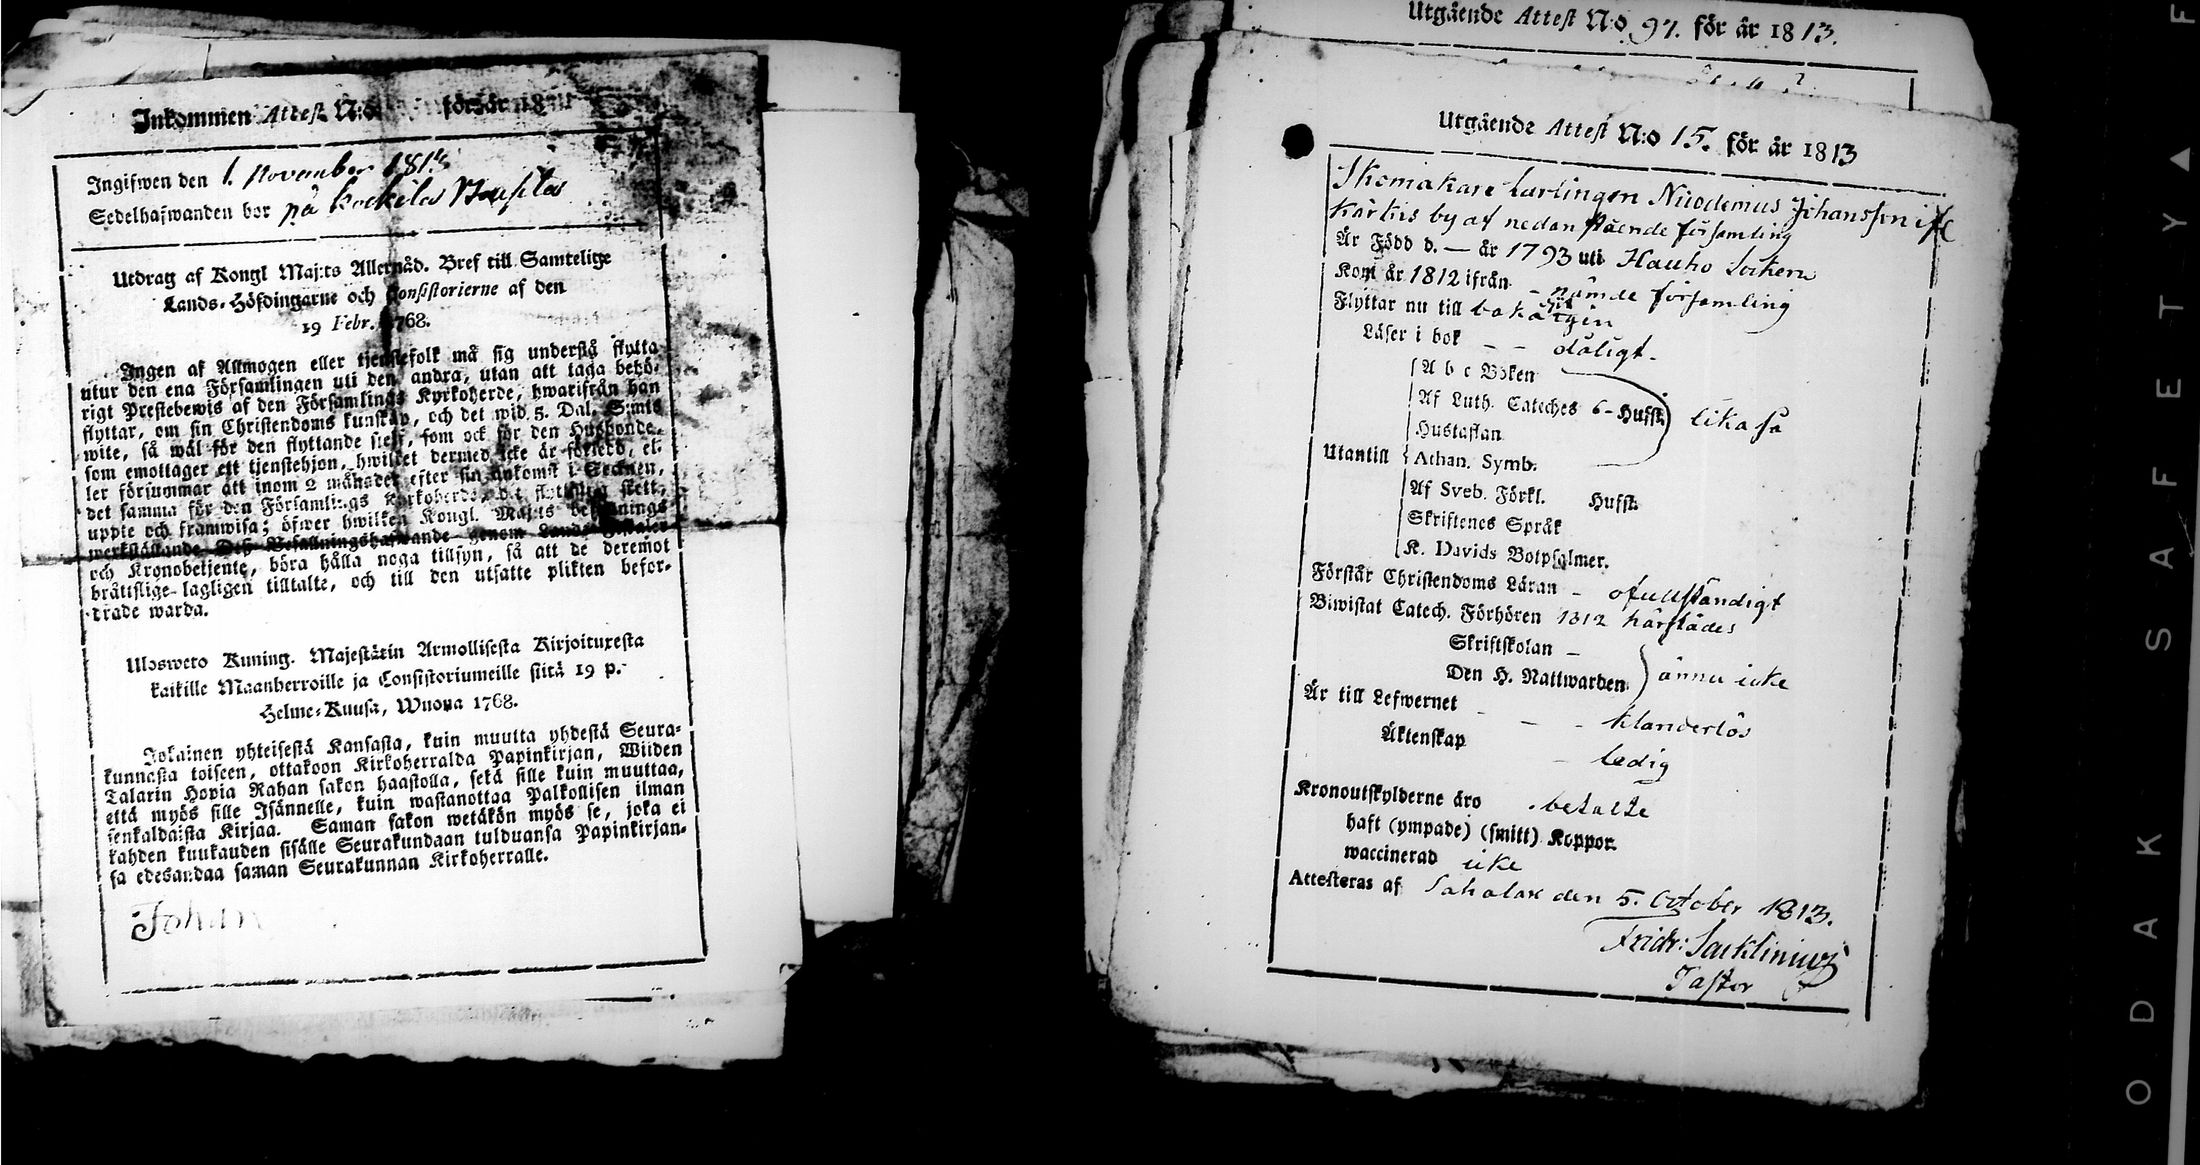 Inkommen Attest N:o för år 18
Ingifwen den 1. November 1813
Sedelhafwanden bor på
Utdrag af Kongl Maj:ts Allernåd. Bref till Samtelige
Lands-Höfdingarne och Consistorierne af den
19 Febr. 1768.
Ingen af Allmogen eller tjenstefolk må sig understå flytta
utur den ena Församlingen uti den andra, utan att taga behö-
rigt Prestebewis af den Församlings Kyrkoherde, hwarifrån han
flyttar, om sin Christendoms kunskap, och det wid 5. Dal. S:mts
wite, så wäl för den flyttande sielf, som ock för den Husbonde,
som emottager ett tjenstehjon, hwilket dermed icke är försedd, el-
ler försummar att inom 2 månader efter sin ankomst i Socknen,
det samma för den Församlings Kyrkoherde, dit flyttning skett,
uppte och framwisa; öfwer hwilken Kongl. Maj:ts befallnings
werkställande Dess Befallningshafwande genom Lands-Fiskaler
och Kronobetjente, böra hålla noga tillsyn, så att de deremot
bråttslige lagligen tilltalte, och till den utsatte plikten befor-
drade warda.
Ulosweto Kuning. Majestätin Armollisesta Kirjoituxesta
kaikille Maanherroille ja Consistoriumeille siitä 19 p.
Helme-Kuusa, Wuona 1768.
Jokainen yhteisestä Kansasta, kuin muutta yhdestä Seura-
kunnasta toiseen, ottakoon Kirkoherralda Papinkirjan, Wiiden
Talarin Hopia Rahan sakon haastolla, sekä sille kuin muuttaa,
että myös sille Isännelle, kuin wastanottaa Palkollisen ilman
senkaldaista Kirjaa. Saman sakon wetäkön myös se, joka ei
kahden kuukauden sisälle Seurakundaan tulduansa Papinkirjan-
sa edesandaa saman Seurakunnan Kirkoherralle.
Johan
Utgående Attest N:o 97. för år 1813.
Utgående Attest N:o 15. för år 1813
Skomakare Lärlingen Nicodemus Johansson ifr
Kärkis by af nedanstående församling
Är Född d. — år 1793 uti Hauho Sockern
Kom år 1812 ifrån - nämde församling
Flyttar nu till baka igen
dit
Läser i bok - - dåligt.
A b c Boken
Af Luth. Cateches 6 - Hufst. lika så
Hustaflan
Utantill Athan. Symb.
Af Sveb. Förkl. Hufst.
Skriftenes Språk
K. Davids Botpsalmer.
Förstår Christendoms Läran - ofullständigt
Biwistat Catech. Förhören 1812 härstädes
Skriftskolan -
Den H. Nattwarden ännu icke
Är till Lefwernet - - - klanderlös
Äktenskap - ledig
Kronoutskylderne äro betalte
haft (ympade) (smitt) Koppor.
waccinerad icke
Attesteras af Sahalax den 5. October 1813.
Pastor
KODAK SAFETY F